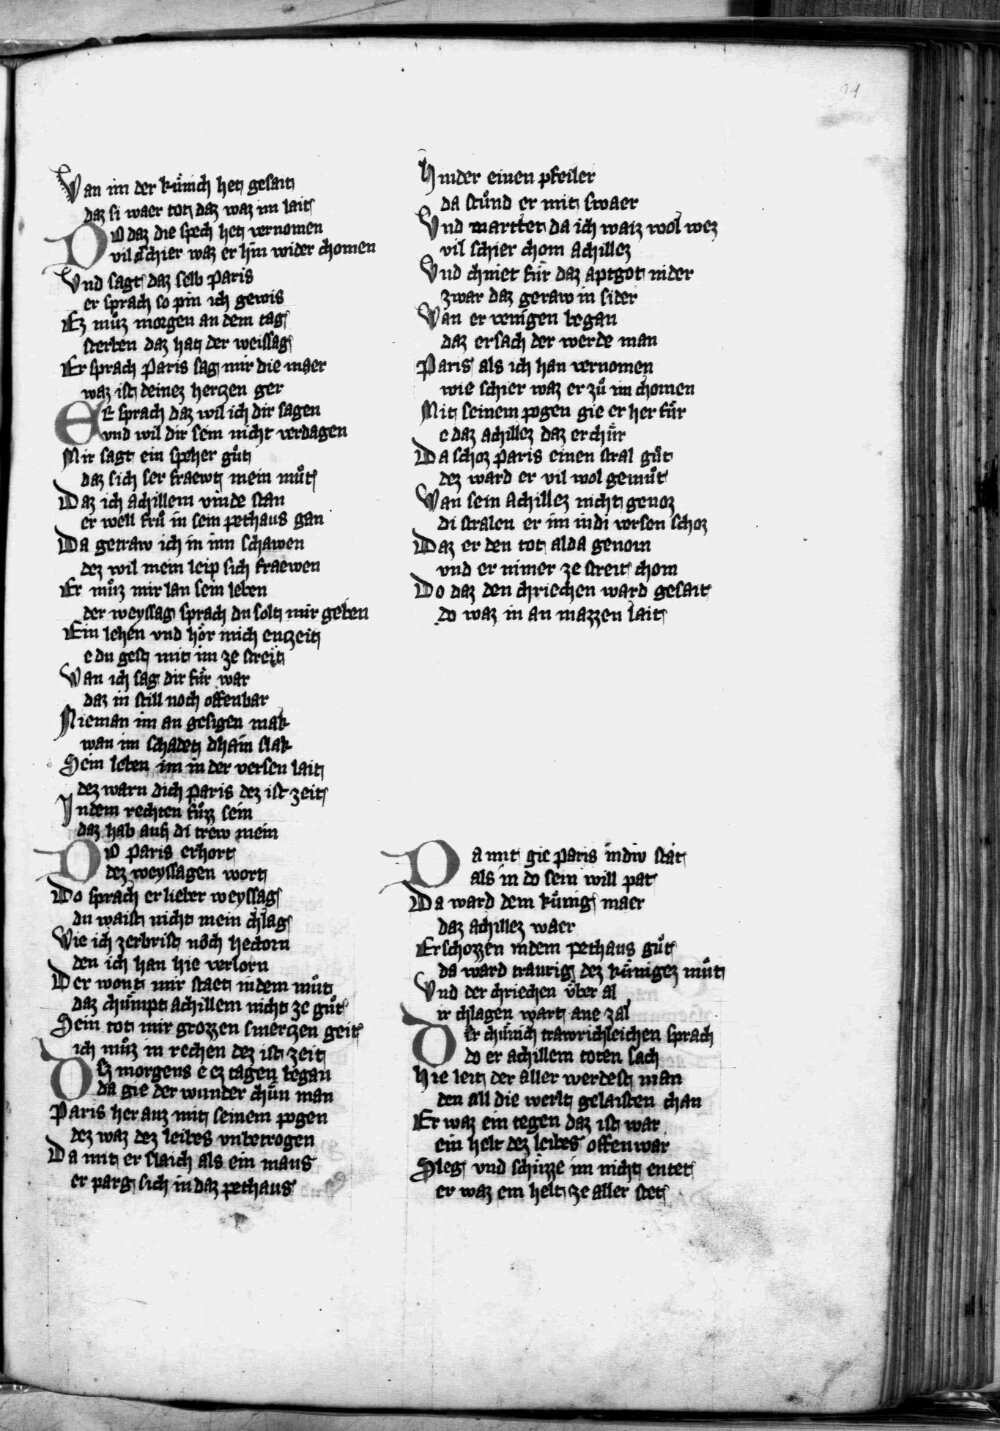 Wan im der kůnich het gesait
daz si waer tot daz waz im lait
Do daz die spech het vernomen
vil schier waz er hin wider chomen
Vnd sagt daz selb Paris
er sprach so pin ich gewis
Ez můz morgen an dem tag
sterben daz hat der weissag
Er sprach Paris sag mir die maer
waz ist deinez herczen ger
Er sprach daz wil ich dir sagen
vnd wil dir sein nicht verdagen
Mir sagt ein speher gůt
daz sich ser fraewt mein můt
Daz ich achillem vinde stan
er well frů in sein pethaus gan
Da getraw ich in inn schawen
dez wil mein leip sich fraewen
Er můz mir lan sein leben
der weyssag sprach du solt mir geben
Ein lehen vnd hőr mich enzeit
e du gest mit im ze streit
Wan ich sag dir fůr war
daz in still noch offenbar
Nieman im an gesigen mak
wan im schadet dhain slak
Sein leben im in der versen lait
dez warn dich paris dez ist zeit
In dem rechten fůzz sein
daz hab auf di trew mein
Do Paris erhort
dez weyssagen wort
Do sprach er lieber weyssag
du waist nicht mein chlag
Wie ich zerbrist noch hectorn
den ich han hie verlorn
Der wont mir staet in dem můt
daz chůmpt achillem nicht ze gůt
Sein tot mir grozzen smerczen geit
ich můz in rechen dez ist zeit
Dez morgens e ez tagen began
da gie der wunder chůn man
Paris her auz mit seinem pogen
dez waz dez leibes vnbetrogen
Da mit er slaich als ein maus
er parg sich in daz pethaus
Hinder einen pfeiler
da stůnd er mit swaer
Vnd martter da ich waiz wol wez
vil schier chom achillez
Vnd chniet fůr daz aptgot nider
zwar daz geraw in sider
Wan er venigen began
daz ersach der werde man
Paris als ich han vernomen
wie schier waz er zů im chomen
Mit seinem pogen gie er her fůr
e daz achillez daz erchůr
Da schoz Paris einen stral gůt
dez ward er vil wol gemůt
Wan sein achillez nicht genoz
di stralen er im in di versen schoz
Daz er den tot alda genom
vnd er nimer ze streit chom
Do daz den chriechen ward gesait
do waz in an mazzen lait
Da mit gie paris in div stat
als in do sein will pat
Da ward dem kůnig maer
daz achillez waer
Erschozzen in dem pethaus gůt
da ward traurig dez kůnigez můt
Vnd der chriechen ůber al
ir chlagen wart ane zal
Der chůnich trawrichleichen sprach
do er achillem toten sach
Hie leit der aller werdest man
den all die werlt gelaisten chan
Er waz ein tegen daz ist war
ein helt dez leibes offenwar
Sleg vnd schůzze im nicht entet
er waz ein helt ze aller stet